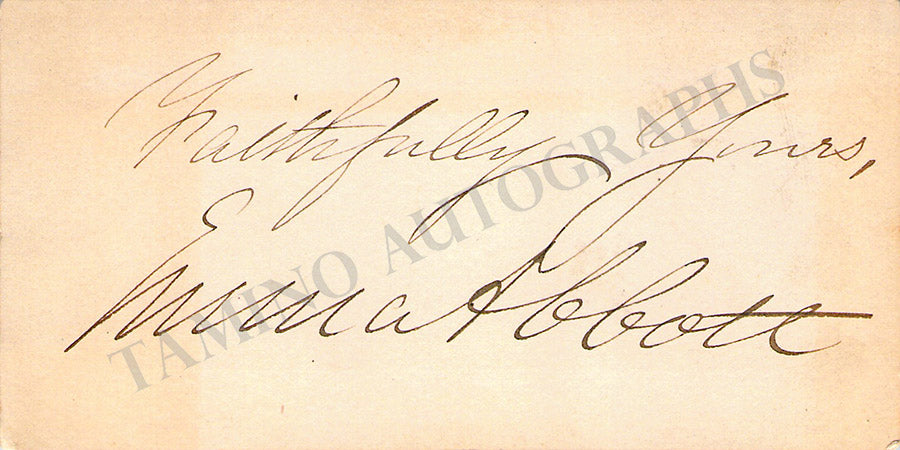 Faithfully Yours,
Emma Abbott
TAMINO AUTOGRAPHS